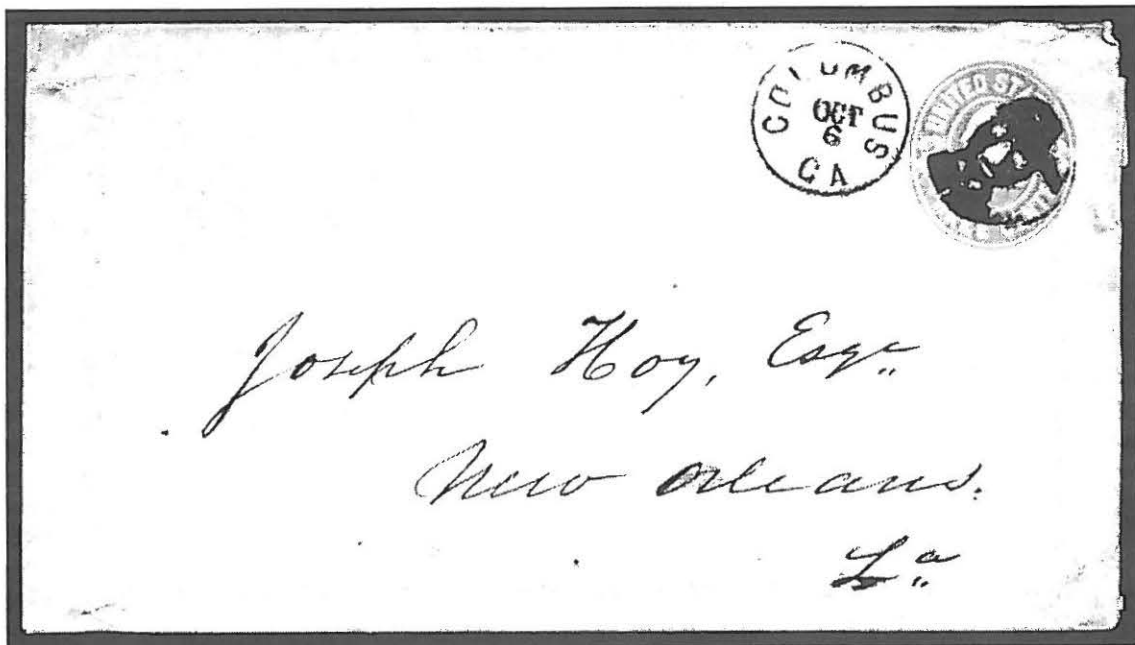 COLUMBUS
OCT
6
GA
UNITED
Joseph Hoy, Esqr.
New Orleans.
La